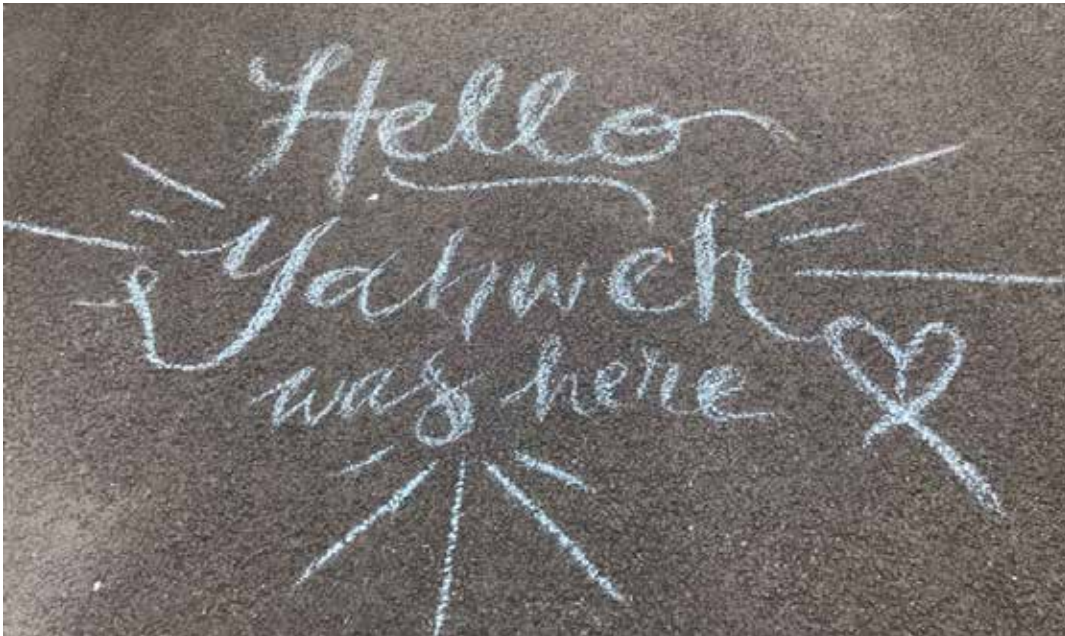 Hello
Yahweh
was here